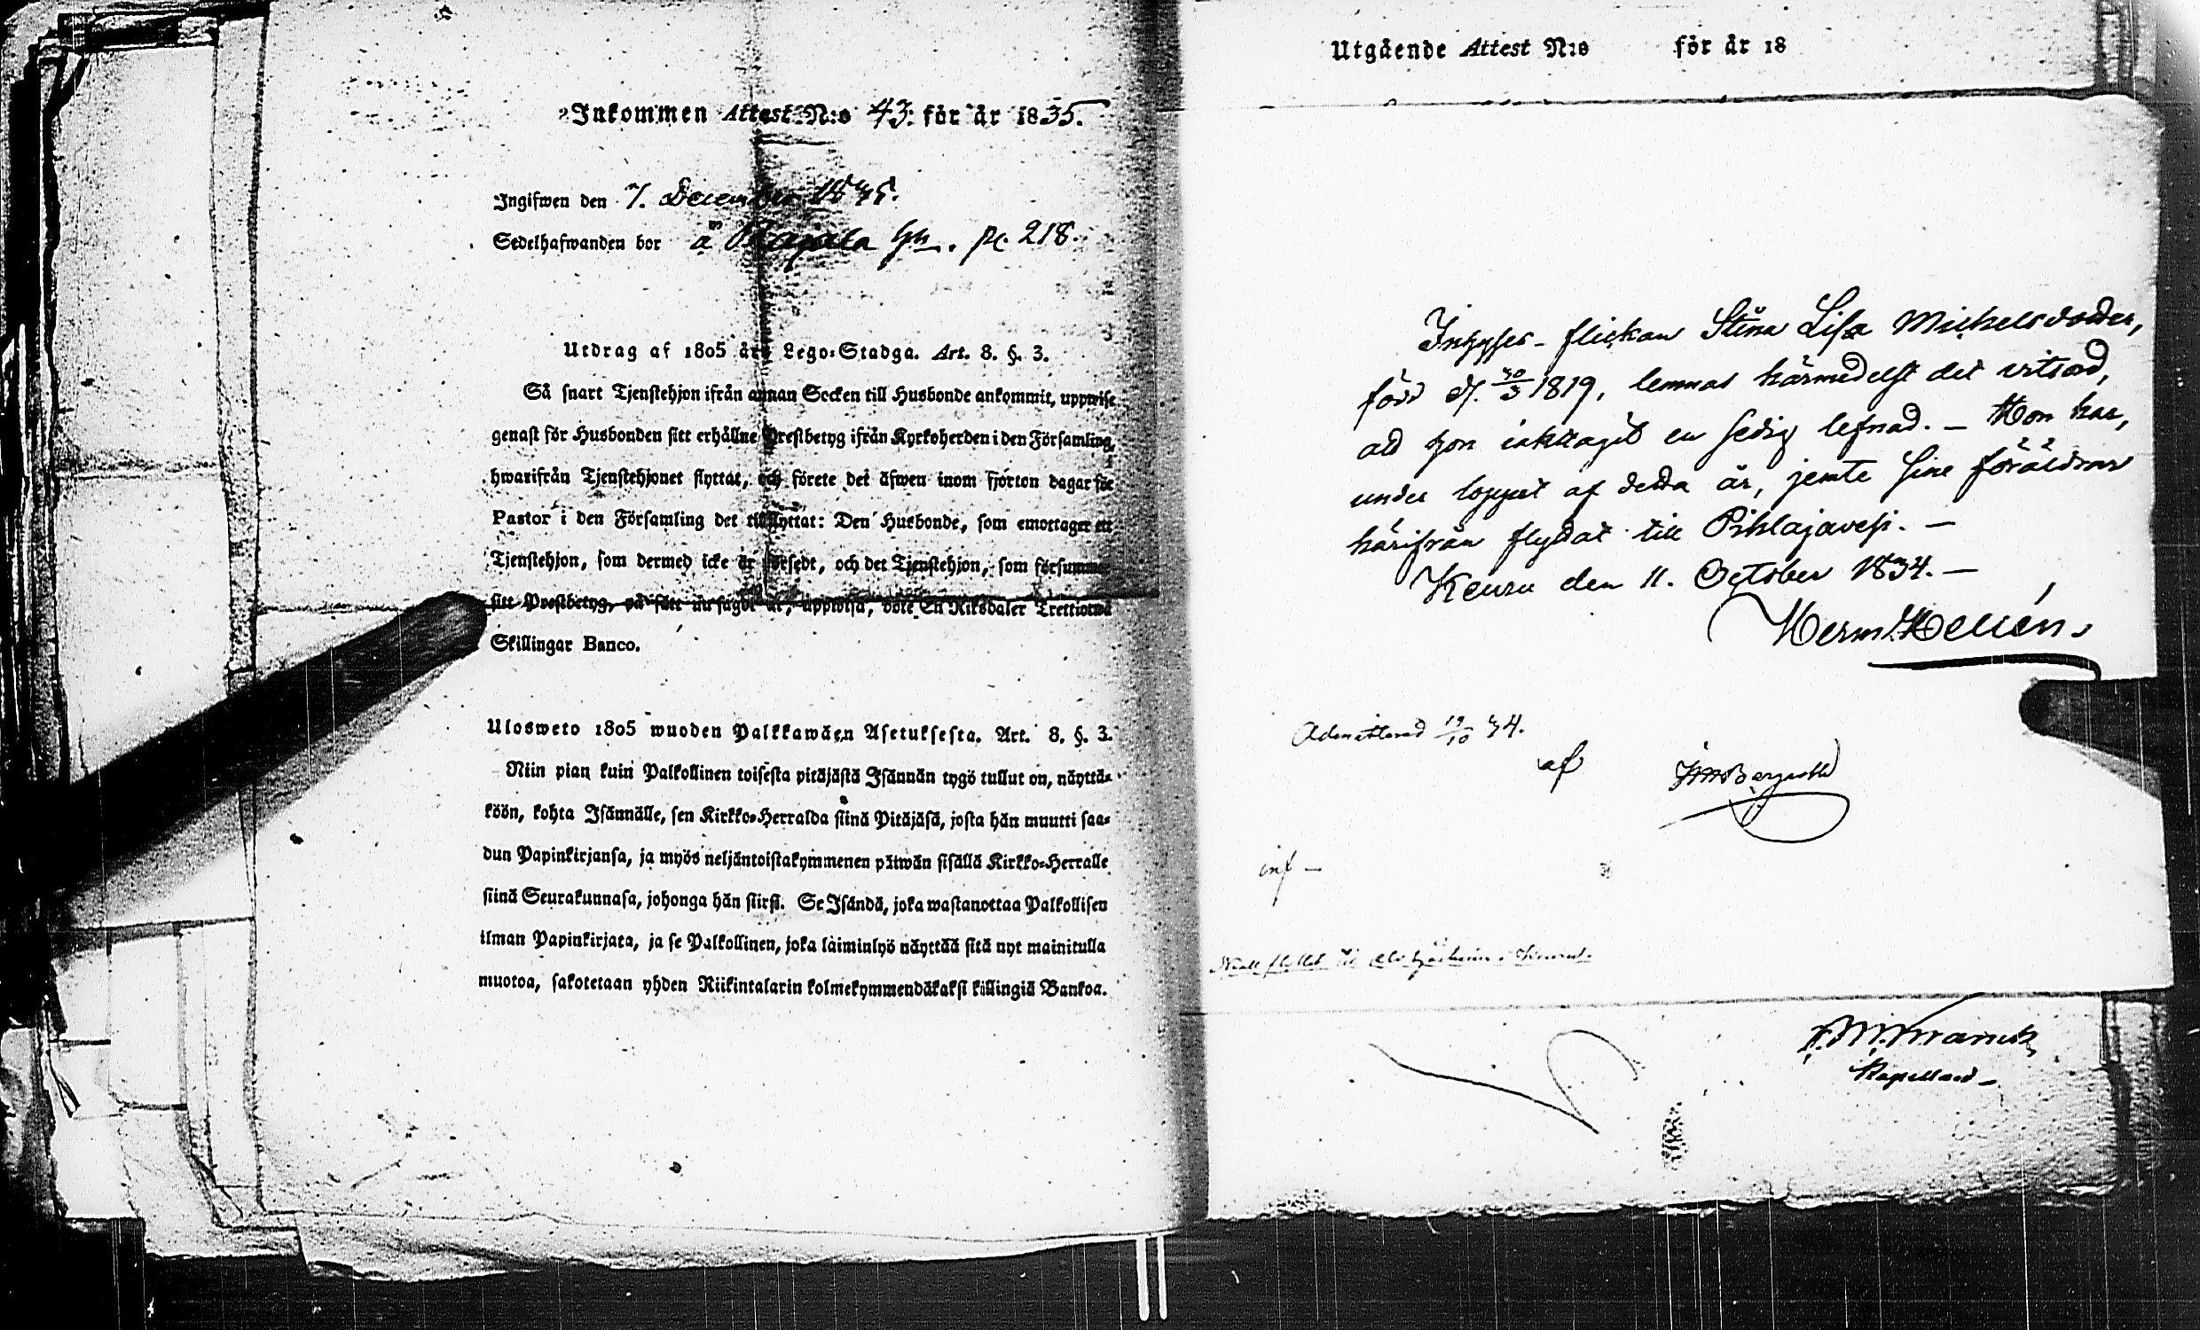 Inkommen Attest N:o 43. för år 1835.
Ingifwen den 7. December 1835.
Sedelhafwanden bor å pc. 218.
Utdrag af 1805 års Lego-Stadga. Art. 8. §. 3.
Så snart Tjenstehjon ifrån annan Socken till Husbonde ankommit, uppwise
genast för Husbonden sitt erhållne Prestbetyg ifrån Kyrkoherden i den Församling,
hwarifrån Tjenstehjonet flyttat, och förete det äfwen inom fjorton dagar för
Pastor i den Församling det tillflyttat: Den Husbonde, som emottager ett
Tjenstehjon, som dermed icke är försedt, och det Tjenstehjon, som försummar
sitt Prestbetyg, på sätt nu sagdt är, uppwisa, böte En Riksdaler Trettiotwå
Skillingar Banco.
Ulosweto 1805 wuoden Palkkawäen Asetuksesta. Art. 8. §. 3.
Niin pian kuin Palkollinen toisesta pitäjästä Isännän tygö tullut on, näyttä-
köön, kohta Isännälle, sen Kirkko-Herralda siinä Pitäjäsä, josta hän muutti saa-
dun Papinkirjansa, ja myös neljäntoistakymmenen päiwän sisällä Kirkko-Herralle
siinä Seurakunnasa, johonga hän siirsi. Se Isändä, joka wastanottaa Palkollisen
ilman Papinkirjata, ja se Palkollinen, joka laiminlyö näyttää sitä nyt mainitulla
muotoa, sakotetaan yhden Riikintalarin kolmekymmendäkaksi killingiä Bankoa.
Utgående Attest N:o för år 18
Inhyses-flickan Stina Lisa Michelsdotter,
född d. 30/3 1819, lemnas härmedelst det vitsord,
att hon iakttagit en sedig lefnad. — Hon har,
under loppet af detta år, jemte sine föräldrar
härifrån flyttat till Pihlajavesi. —
Keuru den 11. October 1834. —
Herm. Hellén.
Admitterad 19/10 34.
af
inf —
Kapellan —